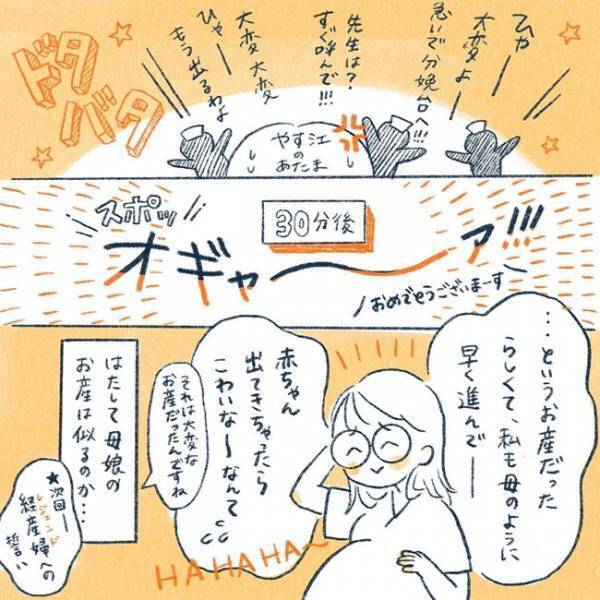 ひゃー
大変よー
急いで分娩台へ!!!
先生は?
すぐ呼んで!!!
大変大変
ひゃー
もう出るわよ
ドタ
バタ
やす江
の
あたま
30分後
スポッ
オギャーーァ!!!
おめでとうございまーす
…というお産だった
らしくて、私も母のように
早く進んでー
赤ちゃん
出てきちゃたら
こわいな〜なんて
HAHAHA〜
それは大変な
お産だったんですね
はたして母娘の
お産は似るのか…
★次回ー
レジェンド
経産婦への
誓い